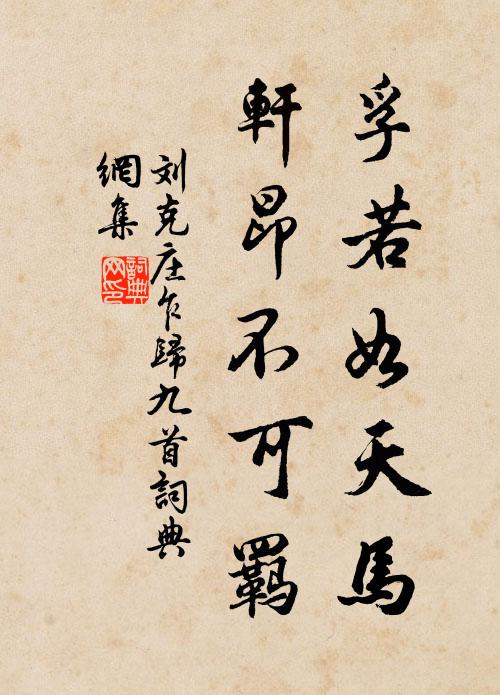 孚若如天馬
軒昂不可羈
刘克庄乍歸九首詞典
網集
詞典
网印